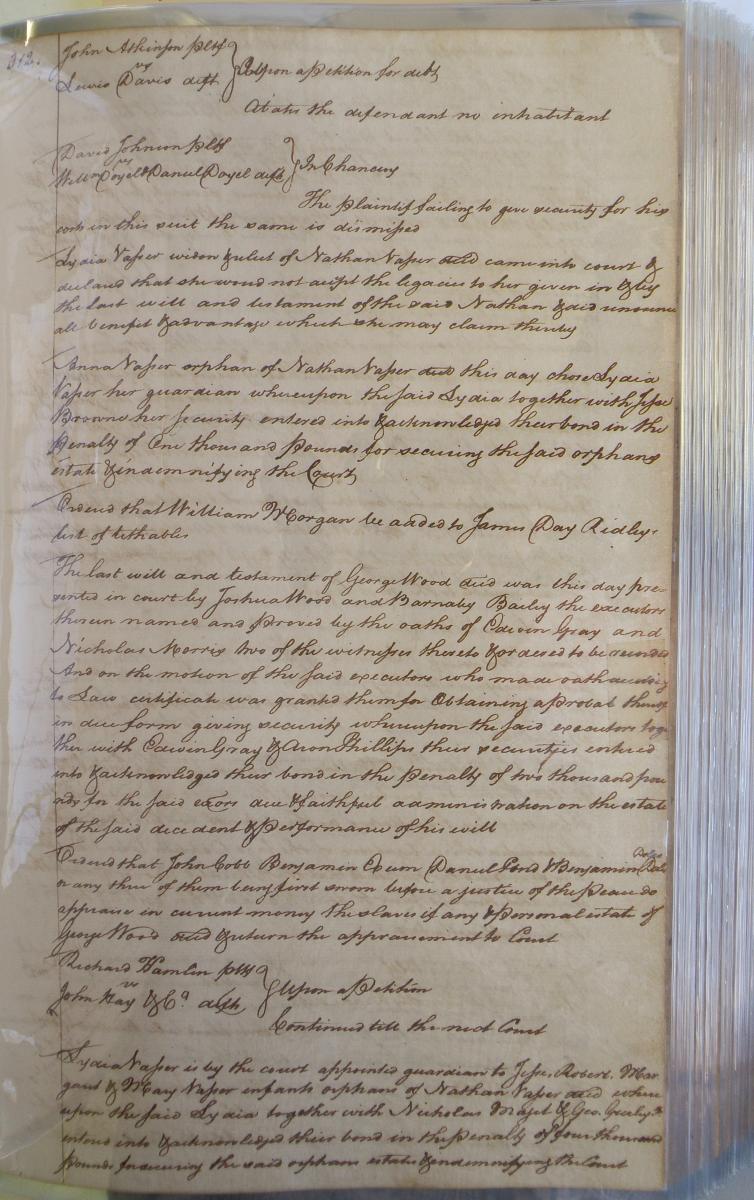 312.
John Atkinson pltf
vs
Lewis Davis deft } Upon a Petition for debt
Abates the defendant no inhabitant
David Johnson pltf
vs
Willm Doyel & Daniel Doyel defts } In Chancery
The plaintif failing to give security for his
costs in this suit the same is dismissed
Lydia Vasser widow & relict of Nathan Vasser decd came into court &
declared that she woud not accept the legacies to her given in & by
the last will and testament of the said Nathan & did renounce
all benefit & advantage which she may claim thereby
Anna Vasser orphan of Nathan Vasser decd this day chose Lydia
Vasser her guardian whereupon the said Lydia together with Jesse
Browne her Security entered into & acknowledged their bond in the
Penalty of One thousand Pounds for securing the said orphans
estate & indemnifying the Court
Ordered that William Morgan be added to James Day Ridleys
list of tithables
The last will and testament of George Wood decd was this day pre=
sented in court by Joshua Wood and Barnaby Bailey the executors
therein named and proved by the oaths of Edwin Gray and
Nicholas Morris two of the witnesses thereto & ordered to be recorded
And on the motion of the said executors who made oath according
to Law certificate was granted them for Obtaining a Probat thereof
in due form giving security whereupon the said executors toge
ther with Edwin Gray & Phillips their securities entered
into & acknowledged their bond in the Penalty of two thousand pou
nds for the said exors due & faithful administration on the estate
of the said decedent & performance of his will
Ordered that John Cobb Benjamin Exum Daniel & Benjamin
or any three of them being first sworn before a justice of the Peace do
appraise in current money the slaves if any & personal estate of
George Wood decd & return the appraisement to Court
Richard Hamlin pltf
vs
John Hay & Co defts } Upon a Petition
Continued till the next Court
Lydia Vasser is by the court appointed guardian to Jesse, Robert, Mar
garet & Mary Vasser infants orphans of Nathan Vasser decd where
upon the said Lydia together with Nicholas Maget & Geo. Gurley
entered into & acknowledged their bond in the Penalty of four thousand
Pounds for securing the said orphans estate & indemnifying the Court